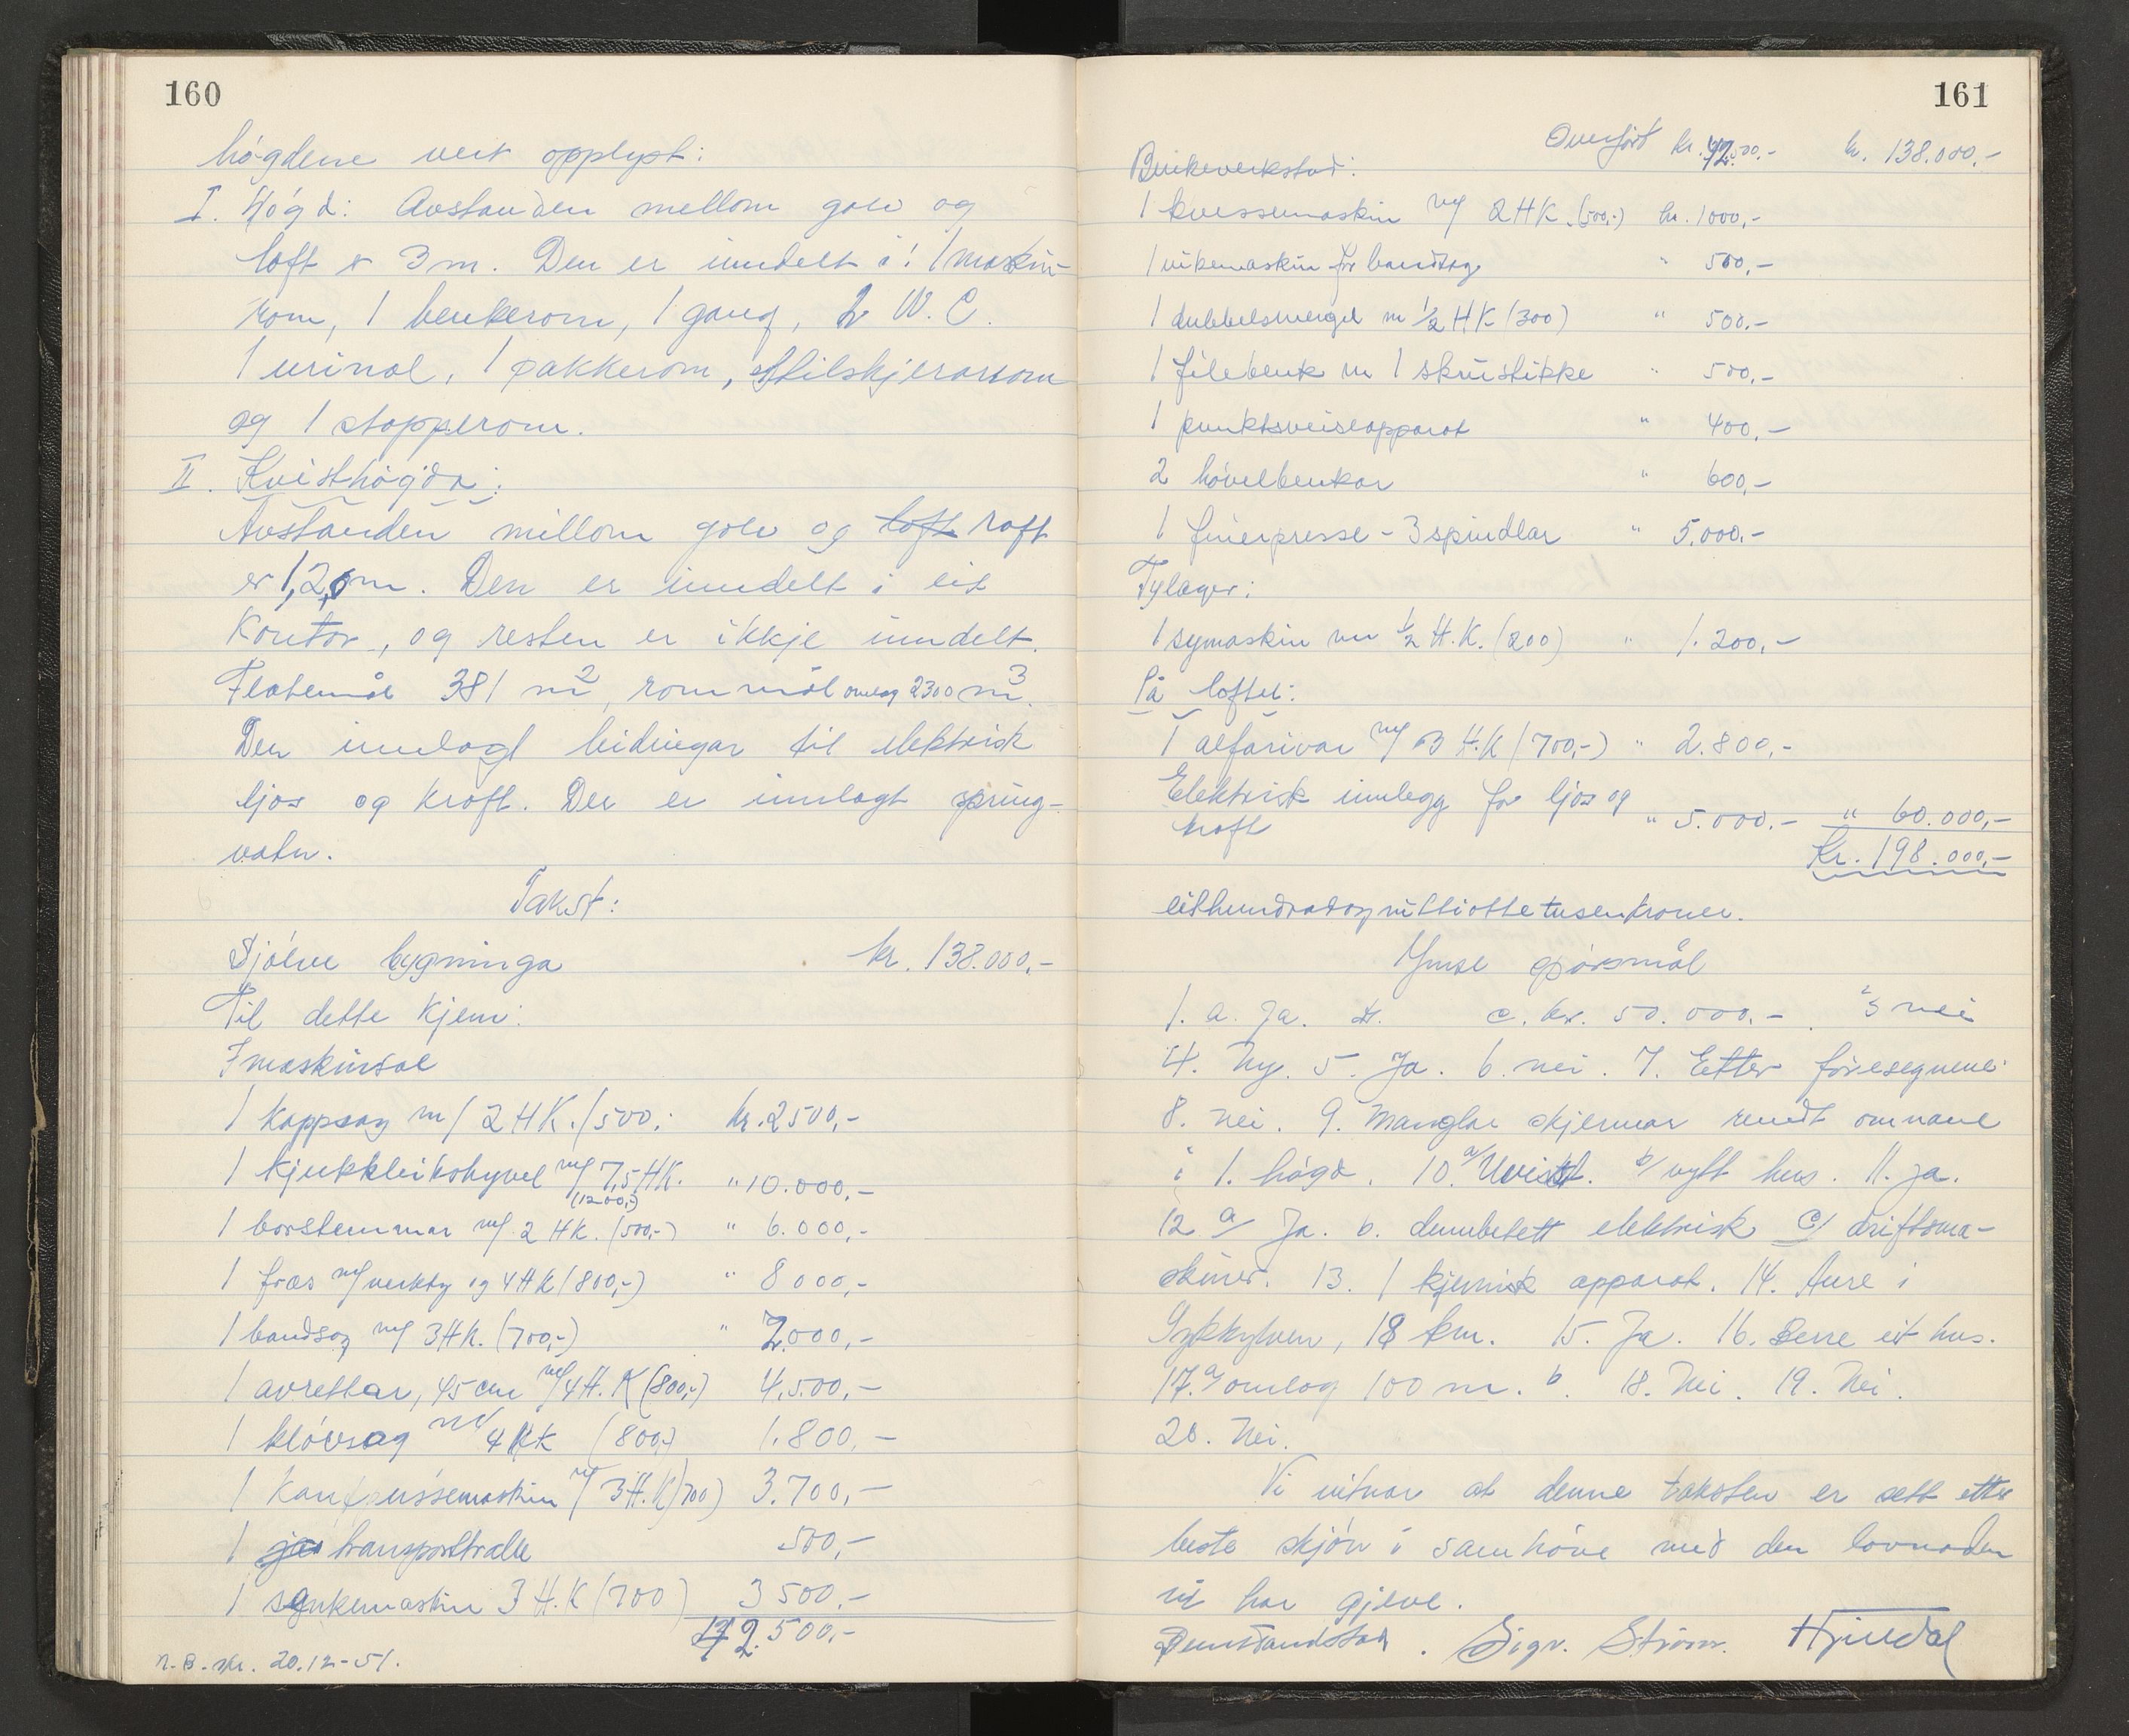 160
högdene vert opplyst:
I. Högd: Avstanden mellom golv og
loft er 3 m. Den er inndelt i: 1 maskin-
rom, 1 benkerom, 1 gang, 2 W. C.
1 urinal, 1 pakkerom, tilskjerarrom
og 1 stopperom.
II. Kvisthögda:
Avstanden millom golv og loft raft
er 1,20 m. Den er inndelt i eit
Kontor, og resten er ikkje inndelt.
Flatemål 381 m², rommål omlag 2300 m³.
Der innlagt leidningar til elektrisk
ljos og kraft. Der er innlagt spring-
vatn.
Takst:
Sjölve bygninga kr. 138.000,-
Til dette kjem:
I maskinsal
1 kappsag m/ 2 HK. (500,- kr. 2500,-
1 kjukkleikshyvel m/ 7,5 HK. (1200,-) " 10.000,-
1 borstemmar m/ 2 HK. (500,-) " 6.000,-
1 fræs m/ verkty og 4 HK (800,-) " 8000,-
1 bandsag m/ 3 HK. (700,-) " 2.000,-
1 avrettar, 45 cm m/ 4 H.K (800,-) 4.500,-
1 klövsag m/ 4 HK (800,-) 1.800,-
1 kantpussemaskin m/ 3 H.K (700) 3.700,-
1 transporttralle 500,-
1 sinkemaskin 3 H.K (700) 3500,-
42.500,-
n. B. skr. 20.12-51.
161
Overfört kr. 42.500,- kr. 138.000,-
Benkeverkstad:
1 kvessemaskin m/ 2 HK. (500,-) kr. 1000,-
1 vikemaskin for bandsag " 500,-
1 dubbelsmergel m 1/2 HK (300) " 500,-
1 filebenk m 1 skruistikke " 500,-
1 punktsveiseapparat " 400,-
2 hövelbenkar " 600,-
1 finerpresse - 3 spindlar " 5.000,-
Tylager:
1 symaskin m 1/2 H.K. (200) " 1.200,-
På loftet:
1 alfarivar m/ 3 H.K (700,-) " 2.800,-
Elektrisk innlegg for ljos og
kraft " 5.000,- " 60.000,-
Kr. 198.000,-
eithundradognittiåttetusenkroner.
Ymse spörsmål
1. a. Ja. c. kr. 50.000,-. 3 nei
4. Ny. 5. Ja. 6. nei. 7. Etter föresegnene
8. nei. 9. Manglar skjermar rundt omnane
i 1. högd. 10. a/ Uvisst. b/ nytt hus. 11. ja.
12 a/ Ja. b. elektrisk c/ driftsma-
skiner. 13. 1 kjemisk apparat. 14. Aure i
Sykkylven, 18 km. 15. Ja. 16. Berre eit hus.
17. a/ omlag 100 m. b. 18. Nei. 19. Nei.
20. Nei.
Vi vitnar at denne taksten er sett etter
beste skjön i samhöve med den lovnaden
vi har gjeve.
Sigv. Ström. Hjelldal